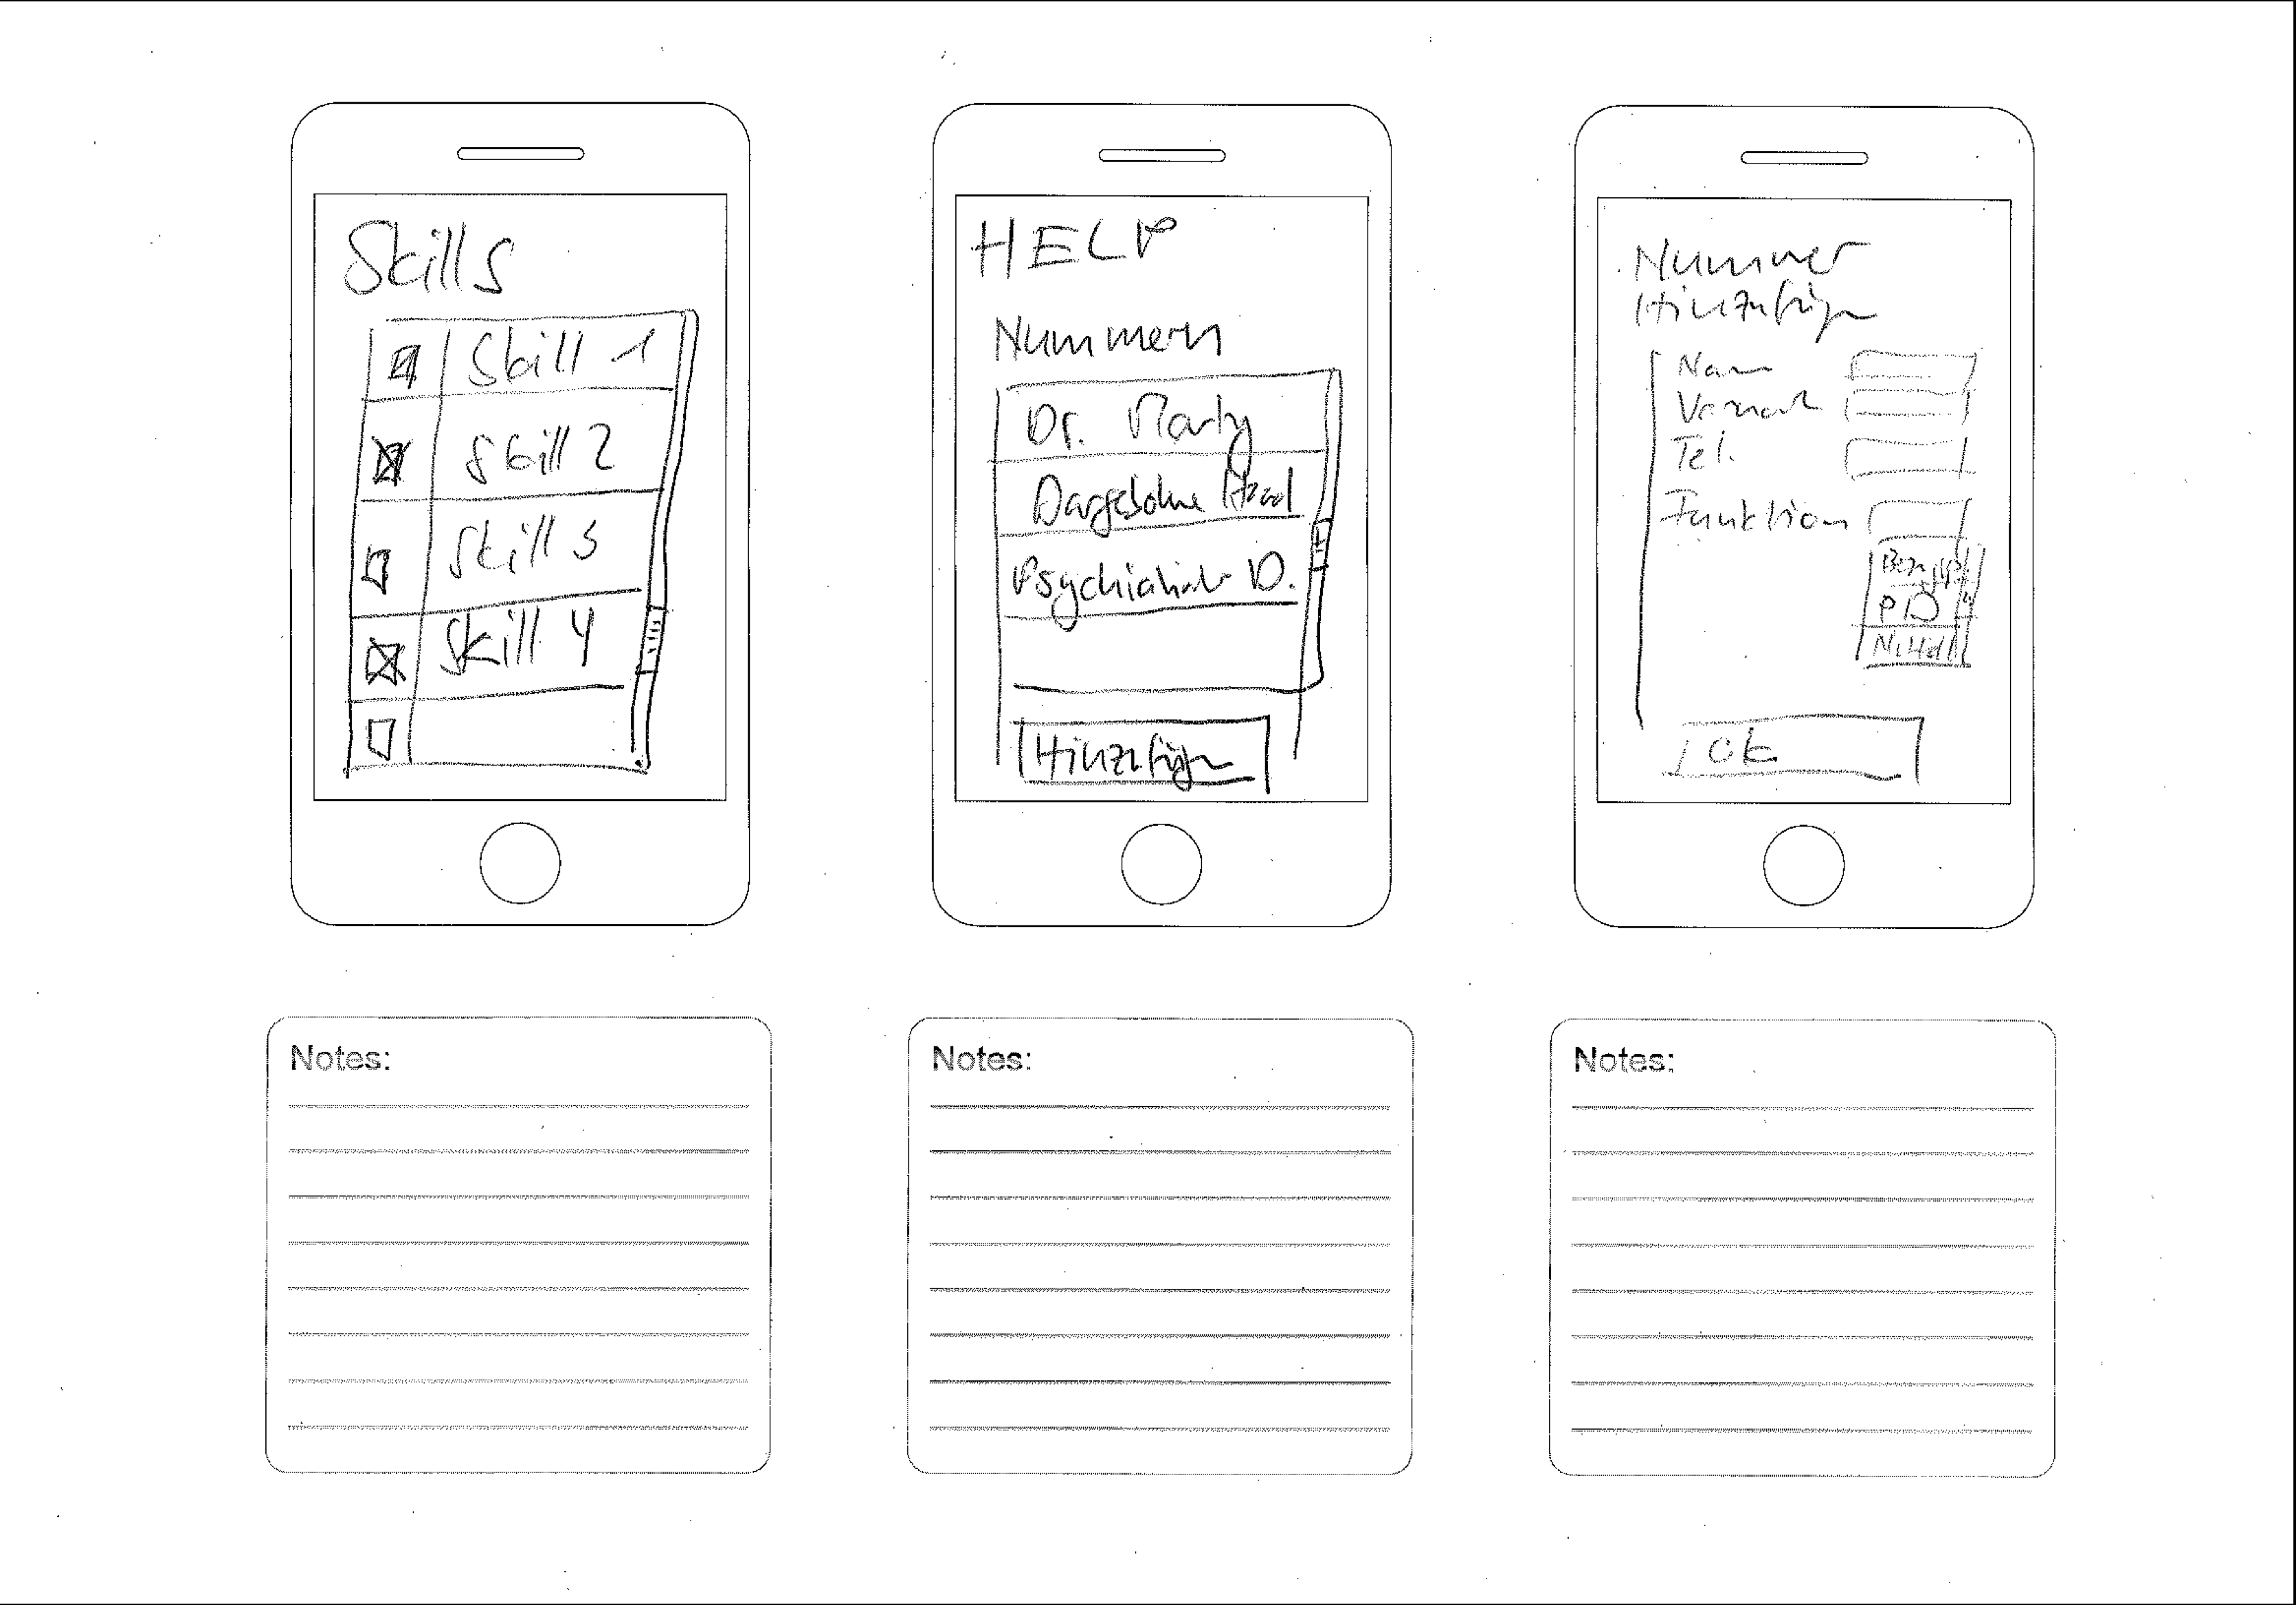 Skills
Skill 1
Skill 2
Skill 3
Skill 4
HELP
Nummern
Dr. Marty
Dargebotene Hand
Psychiatrie D.
Hinzufügen
Nummer
Hinzufügen
Name
Vorname
Tel.
Funktion
PD
Ok
Notes:
Notes:
Notes: